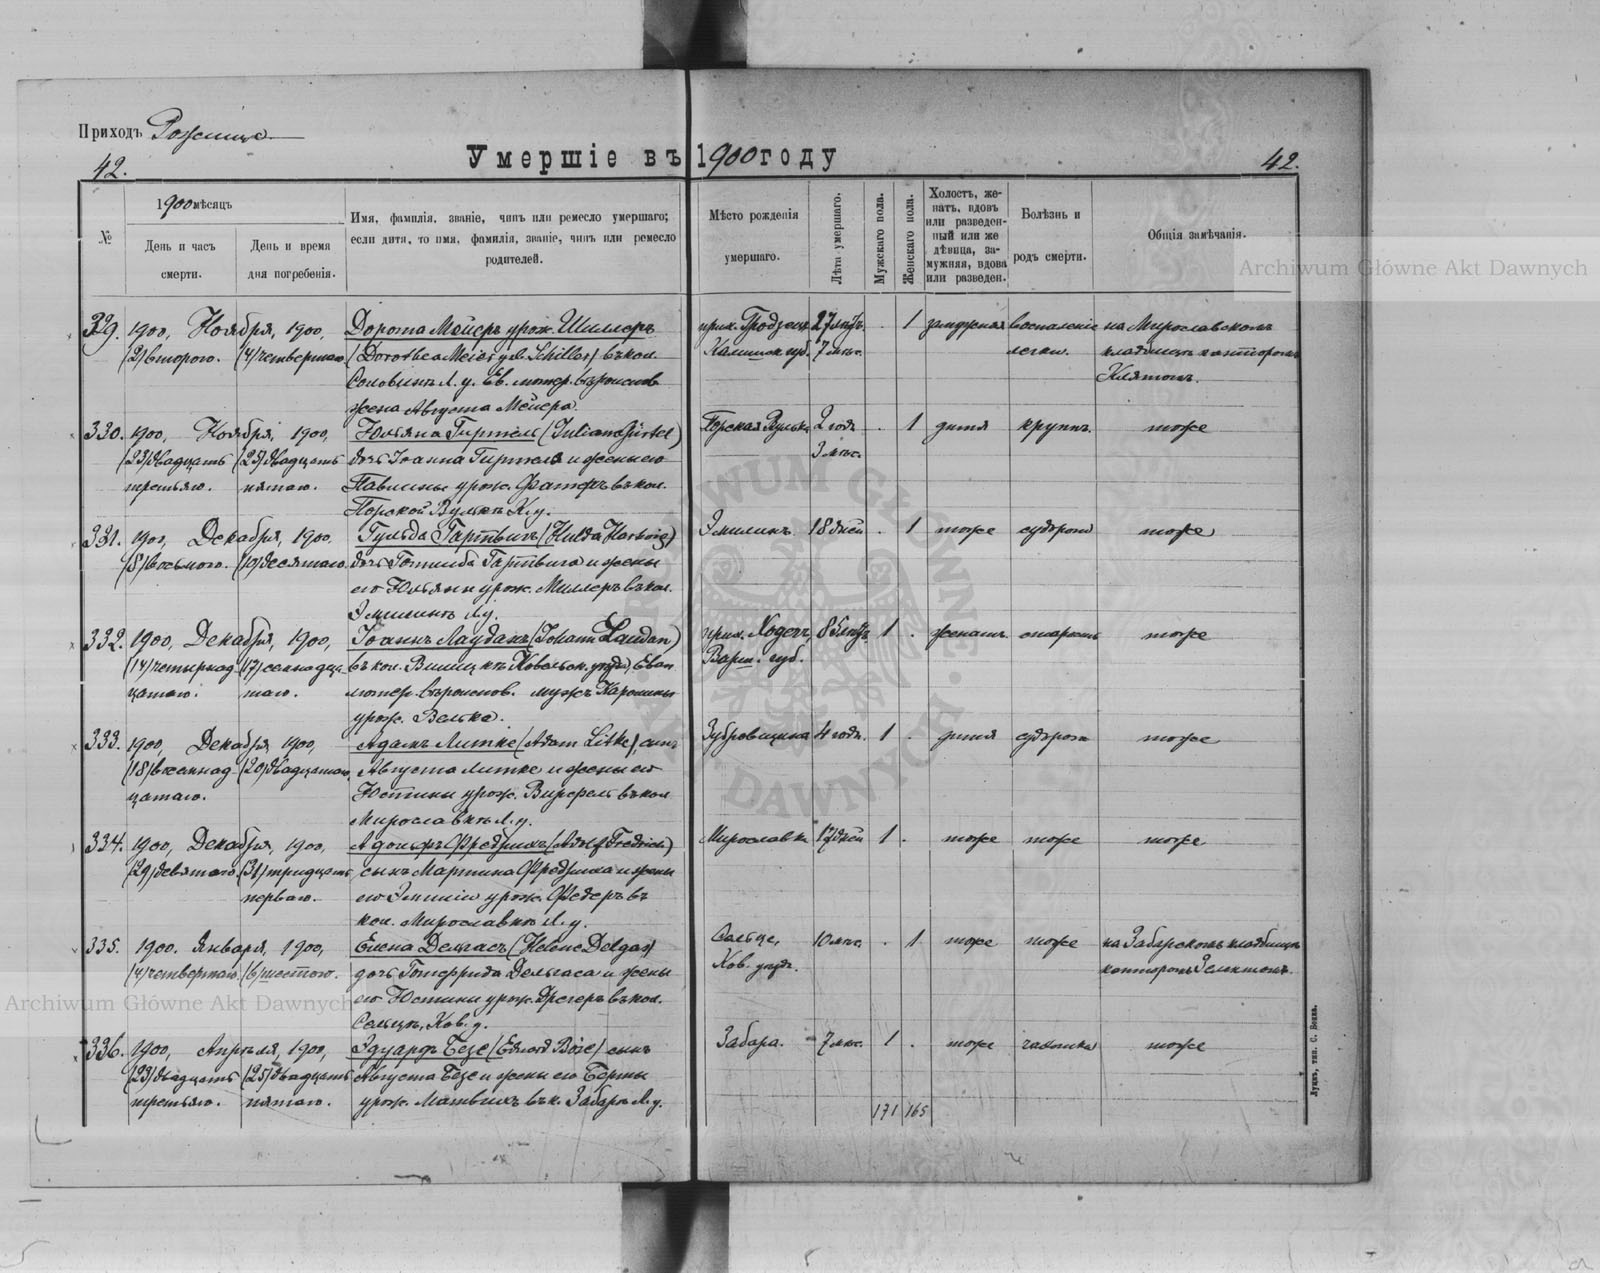 Приходъ Рожище
42.
Умершіе въ 1900 году
42.
№
1900 мѣсяцъ
День и часъ смерти.
День и время дня погребенія.
Имя, фамилія, званіе, чинъ или ремесло умершаго;
если дитя, то имя, фамилія, званіе, чинъ или ремесло
родителей.
Мѣсто рожденія
умершаго.
Лѣта умершаго.
Мужскаго пола.
Женскаго пола.
Холостъ, же-
натъ, вдовъ
или разведен-
ный или же
дѣвица, за-
мужняя, вдова
или разведен.
Болѣзнь и
родъ смерти.
Общія замѣчанія.
Archiwum Główne Akt Dawnych
329. 1900, Ноября, 1900, Дорота Мейеръ урож. Шиллеръ
прих. Гродзецъ 27 лѣтъ . 1 замужняя воспаленіе на Мирославскомъ
(2) второго. (4) четвертаго (Dorothea Meier geb. Schiller) въ кол.
Калишск. губ. 7 мѣс. легки. кладбищѣ канторомъ
Л. у. Ев. лютер. вѣроиспов.
Клятомъ.
жена Августа Мейера.
330. 1900, Ноября, 1900, Юльяна Гиртель (Juliana Gürtel)
Порская Вулька 2 года . 1 дитя крупъ. тоже
(23) двадцать (25) двадцать дочь Іоанна Гиртеля и жены его
3 мѣс.
третьяго. пятаго. Павлины урож. въ кол.
Порской Вулькѣ К. у.
331. 1900, Декабря, 1900, Гульда Гартвигъ (Hulda Hartwig)
Эмилинъ. 18 дней . 1 тоже судороги тоже
(8) восьмого. (10) десятаго. дочь Готлиба Гартвига и жены
его Юльяны урож. Миллеръ въ кол.
Эмилинѣ Л. у.
332. 1900, Декабря, 1900, Іоаннъ Лауданъ (Johann Laudan)
прих. Ходечъ, 85 лѣтъ 1 . женатъ старость тоже
(14) четырнад- (17) семнадца- въ кол. Ковельск. уѣзда, Еван.
Варш. губ.
цатаго. таго. лютер. вѣроиспов. мужъ Каролины
урож. Велька.
333. 1900, Декабря, 1900, Адамъ Литке (Adam Litke), сынъ
Зубровщина 4 года. 1 . дитя судороги тоже
(18) восемнад- (20) двадцатаго, Августа Литке и жены его
цатаго. Юстины урож. въ кол.
Мирославкѣ Л. у.
334. 1900, Декабря, 1900, Адольфъ Фредрихъ (Adolf Fredrich)
Мирославка 17 дней 1 . тоже тоже тоже
(29) девятаго (31) тридцать сынъ Мартина Фредриха и жены
перваго. его Эмиліи урож. Федеръ въ
кол. Мирославкѣ Л. у.
335. 1900. Января, 1900, Елена Делгасъ (Helene Delgas)
Сельце, 10 мѣс. . 1 тоже тоже на Забарскомъ кладбищѣ
(4) четвертаго. (6) шестого. дочь Готфрида Делгаса и жены
Ков. уѣзда. канторомъ
его Юстины урож. Дрегеръ въ кол.
Сельцѣ, Ков. у.
Archiwum Główne Akt Dawnych
336. 1900, Апрѣля, 1900, Эдуардъ Безе (Eduard Böse) сынъ
Забара. 7 мѣс. 1 . тоже чахотка тоже
(23) двадцать (25) двадцать Августа Безе и жены его Берты
третьяго. пятаго. урож. въ к. Забарѣ Л. у.
171 165
Луцкъ, тип. С. Бокка.
ARCHIWUM GŁÓWNE AKT DAWNYCH